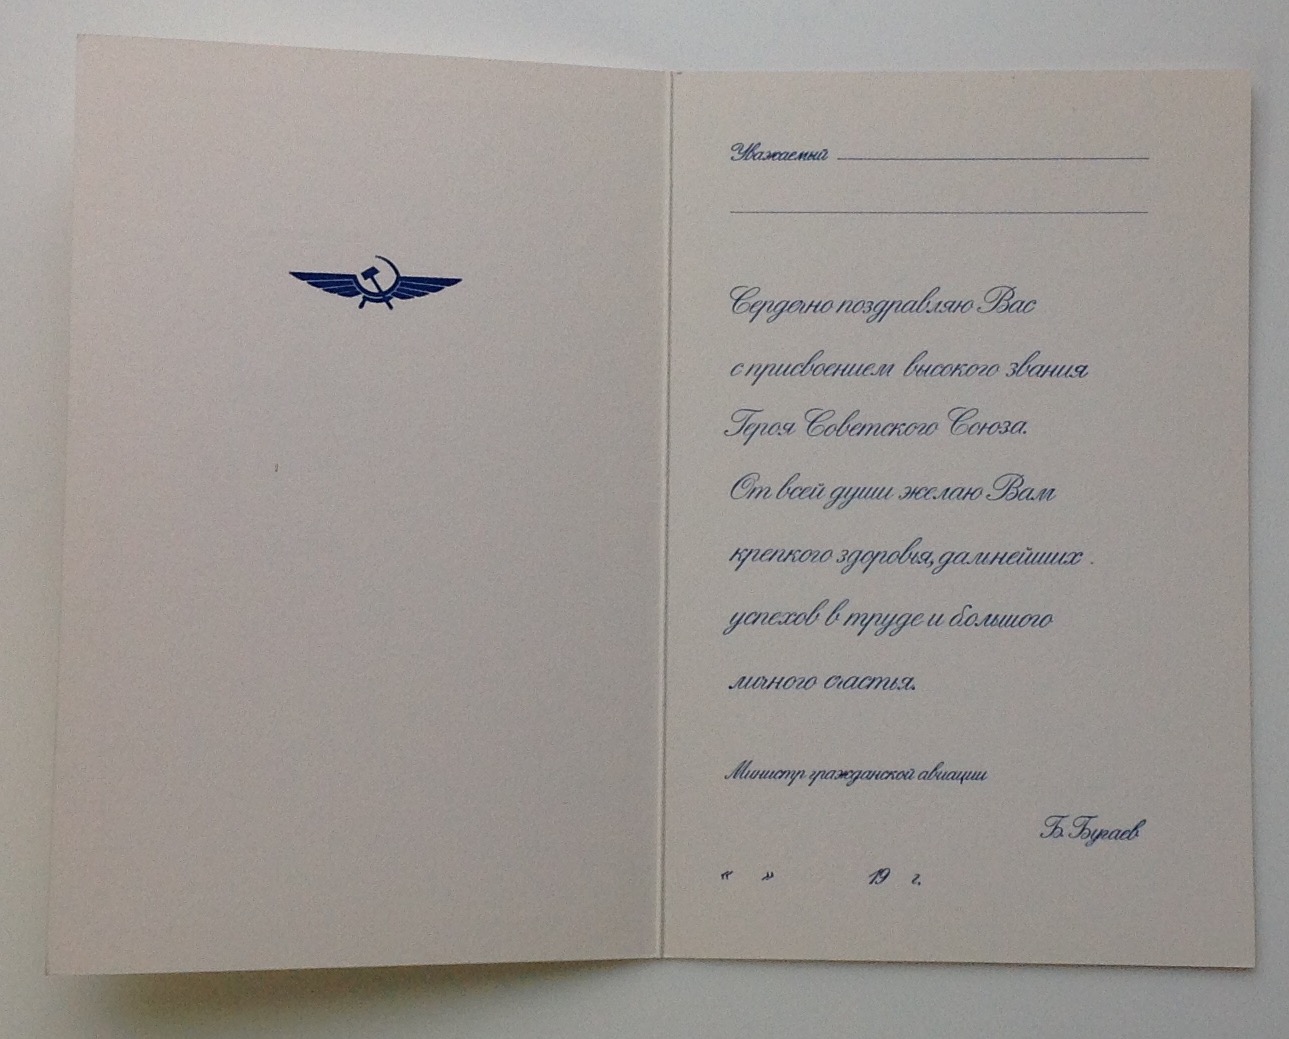 Уважаемый
Сердечно поздравляю Вас
с присвоением высокого звания
Героя Советского Союза.
От всей души желаю Вам
крепкого здоровья, дальнейших
успехов в труде и большого
личного счастья.
Министр гражданской авиации
Б. Бугаев
« » 19 г.